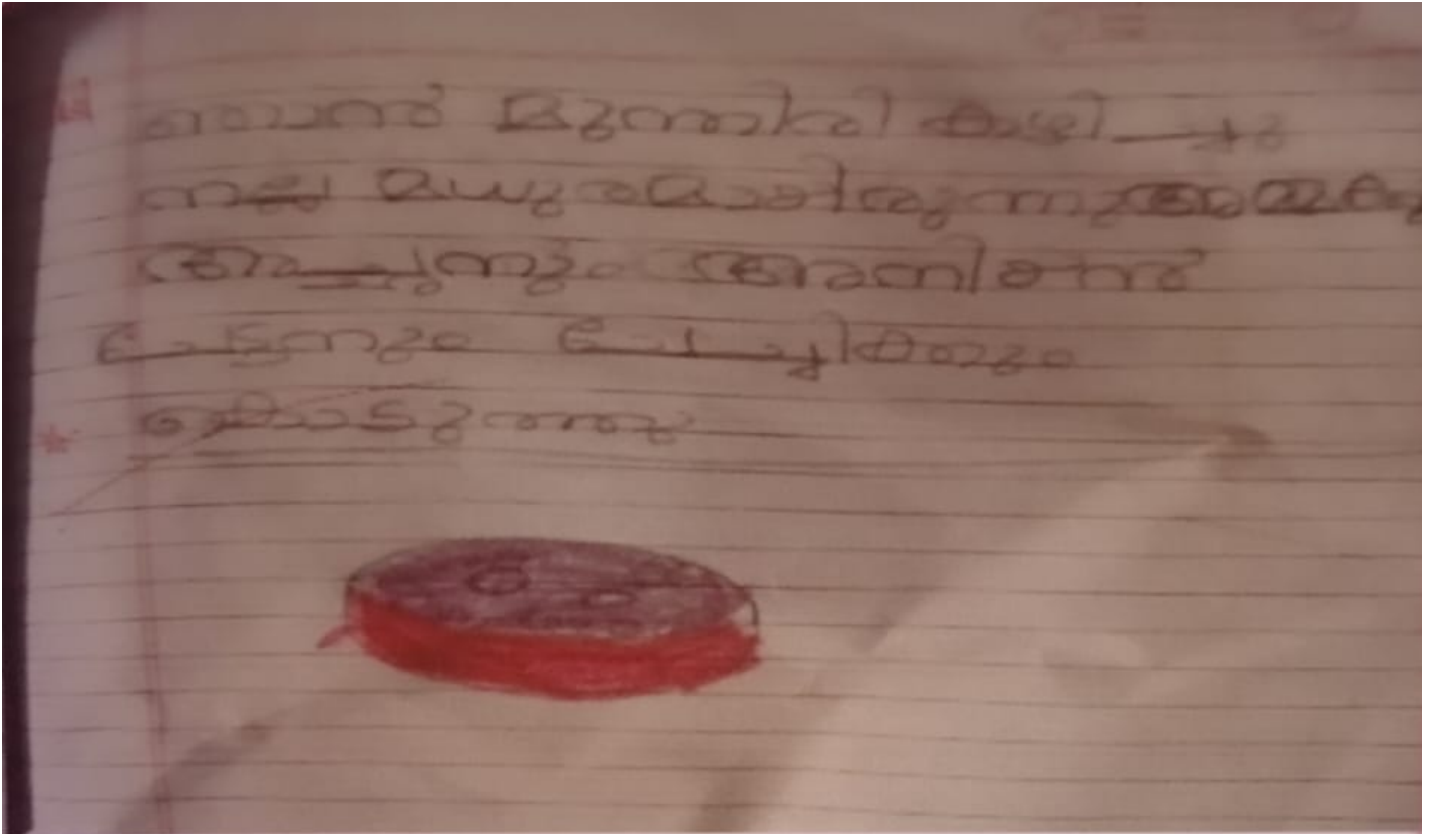 ഞാൻ മുന്തിരി കഴിച്ചു
നല്ല മധുരമായിരുന്നു അമ്മക്കു
അച്ചനും അനിയൻ
ചേട്ടനും ചേച്ചിക്കും
കൊടുത്തു